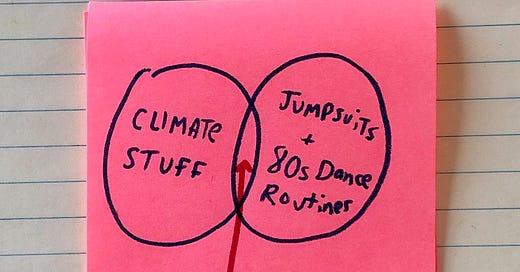 CLIMATE
STUFF
JUMPSUITS
+
80s Dance
Routines